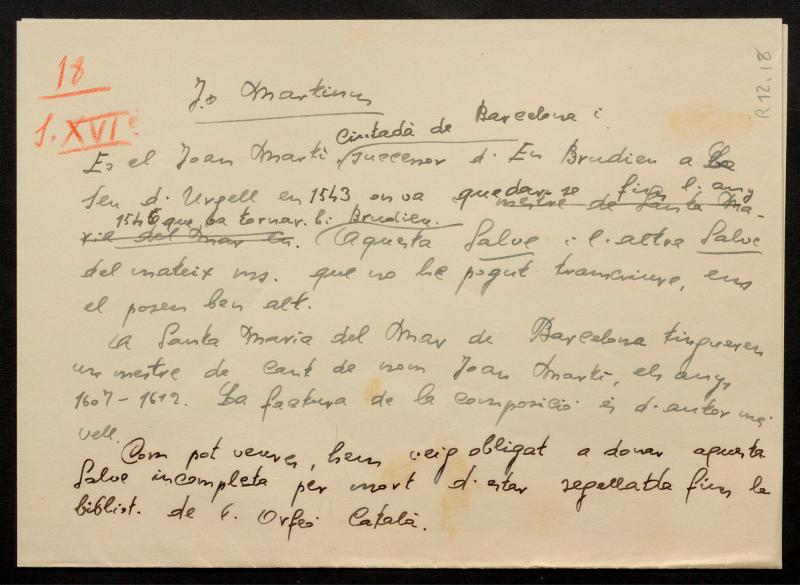 18
S. XVI
R 12.18
Jo Martinus
Ciutadà de Barcelona i
Es el Joan Martí successor d'En Brudieu a la
Seu d'Urgell en 1543 on va quedar-se fins l'any
mestre de Santa Ma-
1545 que va tornar-hi Brudieu.
ria del Mar en. Aquesta Salve i l'altra Salve
del mateix ms. que no he pogut transcriure, ens
el posen ben alt.
A Santa Maria del Mar de Barcelona tingueren
un mestre de cant de nom Joan Martí, els anys
1607-1612. La factura de la composició és d'autor més
vell.
Com pot veure, hem obligat a donar aquesta
Salve incompleta per mort d'estar segellatda fins la
bibliot. de l'Orfeó Català.